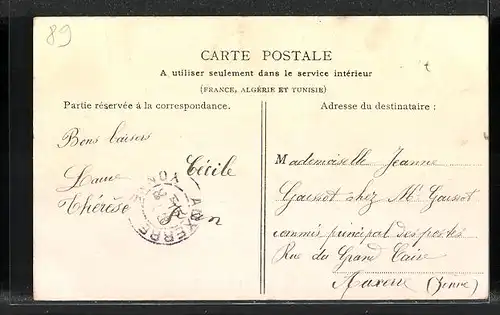 89
CARTE POSTALE
A utiliser seulement dans le service intérieur
(FRANCE, ALGÉRIE ET TUNISIE)
Partie réservée à la correspondance.
Adresse du destinataire :
Bons baisers
Cécile
Thérèse
AUXERRE
YONNE
Mademoiselle Jeanne
Gaussot chez Mr Gaussot
commis principal des postes
Rue du Grand Caire
Auxerre (Yonne)